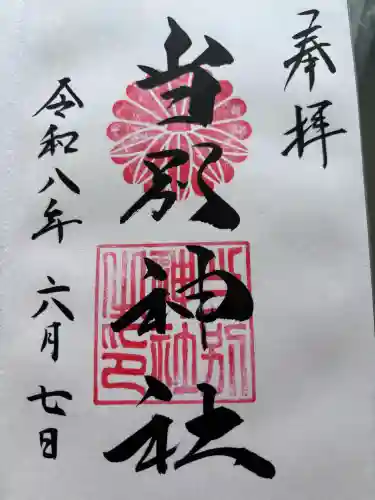 奉拝
当別神社
当別神社之印
令和八年 六月七日